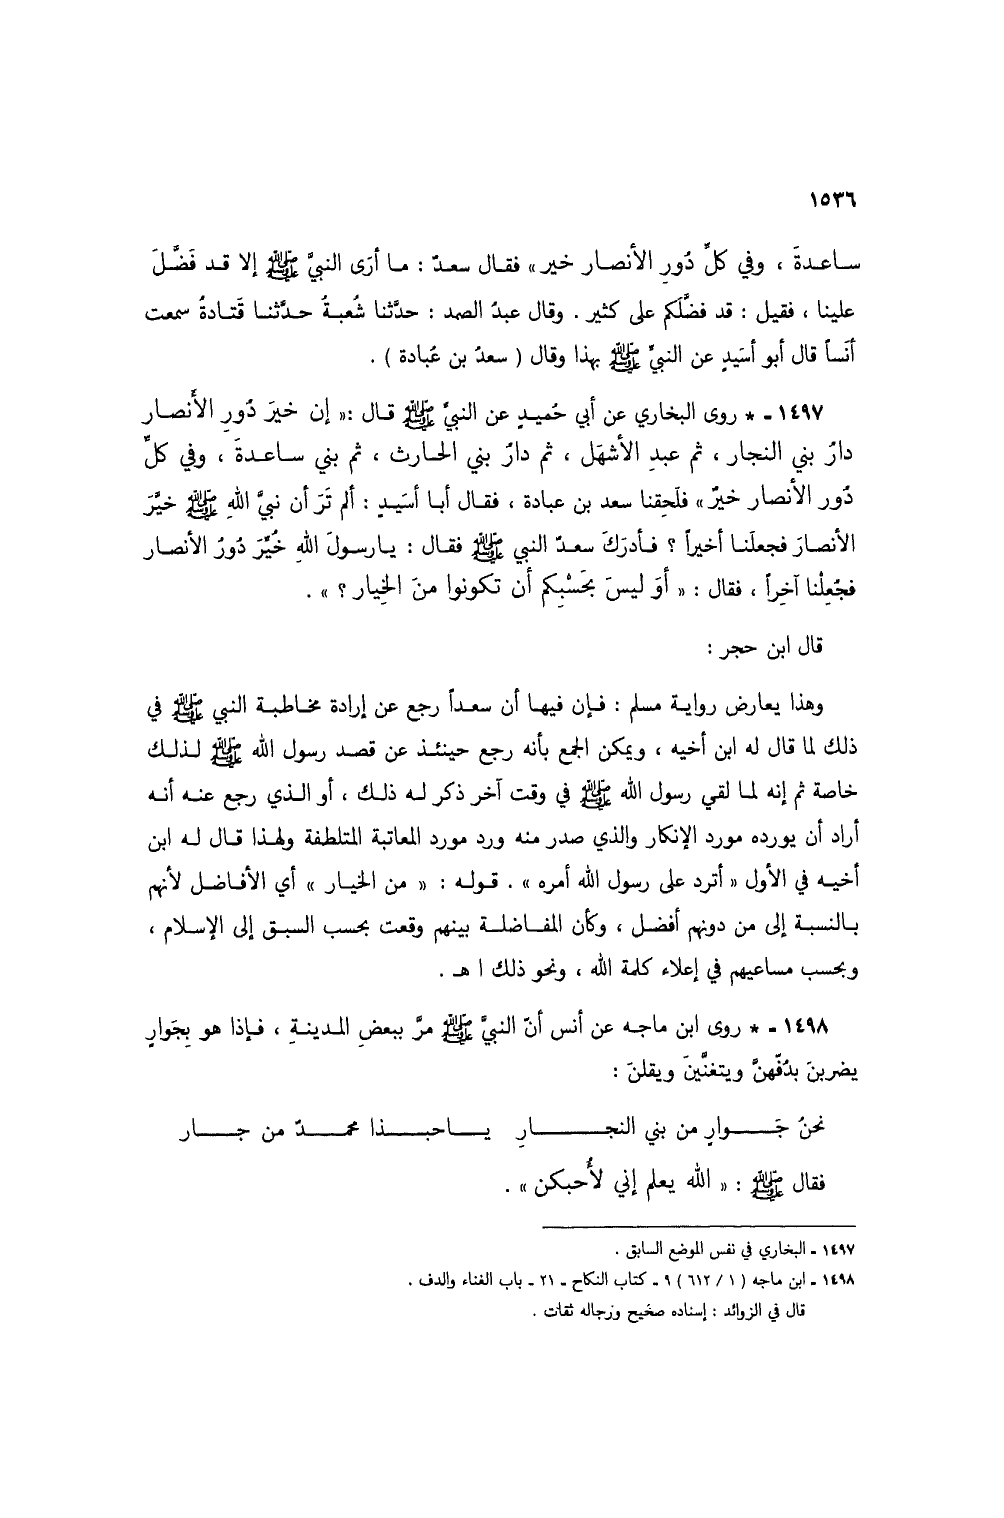 ١٥٣٦
ساعدةَ ، وفي كلِّ دُورِ الأنصار خير» فقال سعدٌ : ما أرَى النبيَّ ﷺ إلا قد فَضَّلَ
علينا ، فقيل : قد فضَّلَكم على كثير . وقال عبدُ الصمد : حدَّثنا شُعبةُ حدَّثنا قَتادةُ سمعت
أنَساً قال أبو أسَيدٍ عن النبيِّ ﷺ بهذا وقال ( سعدُ بن عُبادة ) .
١٤٩٧ ـ * روى البخاري عن أبي حُميدٍ عن النبيِّ ﷺ قال :« إن خيرَ دُورِ الأَنصار
دارُ بني النجار ، ثم عبدِ الأشهَل ، ثم دارُ بني الحارث ، ثم بني ساعدةَ ، وفي كلِّ
دُور الأنصار خيرٌ» فلَحِقنا سعد بن عبادة ، فقال أبا أسَيدٍ : ألم تَرَ أن نبيَّ اللهِ ﷺ خيَّرَ
الأنصارَ فجعلَنا أخيراً ؟ فأدرَكَ سعدٌ النبي ﷺ فقال : يارسولَ اللهِ خُيِّرَ دُورُ الأنصار
فجُعِلْنا آخِراً ، فقال : « أوَ ليسَ بحَسْبِكم أن تكونوا منَ الخِيار ؟ » .
قال ابن حجر :
وهذا يعارض رواية مسلم : فإن فيها أن سعداً رجع عن إرادة مخاطبة النبي ﷺ في
ذلك لما قال له ابن أخيه ، ويمكن الجمع بأنه رجع حينئذ عن قصد رسول الله ﷺ لذلك
خاصة ثم إنه لما لقي رسول الله ﷺ في وقت آخر ذكر له ذلك ، أو الذي رجع عنه أنه
أراد أن يورده مورد الإنكار والذي صدر منه ورد مورد المعاتبة المتلطفة ولهذا قال له ابن
أخيه في الأول « أترد على رسول الله أمره » . قوله : « من الخيار » أي الأفاضل لأنهم
بالنسبة إلى من دونهم أفضل ، وكأن المفاضلة بينهم وقعت بحسب السبق إلى الإسلام ،
وبحسب مساعيهم في إعلاء كلمة الله ، ونحو ذلك ا هـ .
١٤٩٨ ـ * روى ابن ماجه عن أنس أنّ النبيَّ ﷺ مرَّ ببعضِ المدينةِ ، فإذا هو بِجَوارٍ
يضربنَ بدُفّهِنَّ ويتغنَّينَ ويقلنَ :
نحنُ جَوارٍ من بني النجارِ ياحبذا محمدٌ من جار
فقال ﷺ : « الله يعلم إني لأُحبكن » .
١٤٩٧ ـ البخاري في نفس الموضع السابق .
١٤٩٨ ـ ابن ماجه ( ١ / ٦١٢ ) ٩ ـ كتاب النكاح ـ ٢١ ـ باب الغناء والدف .
قال في الزوائد : إسناده صحيح ورجاله ثقات .